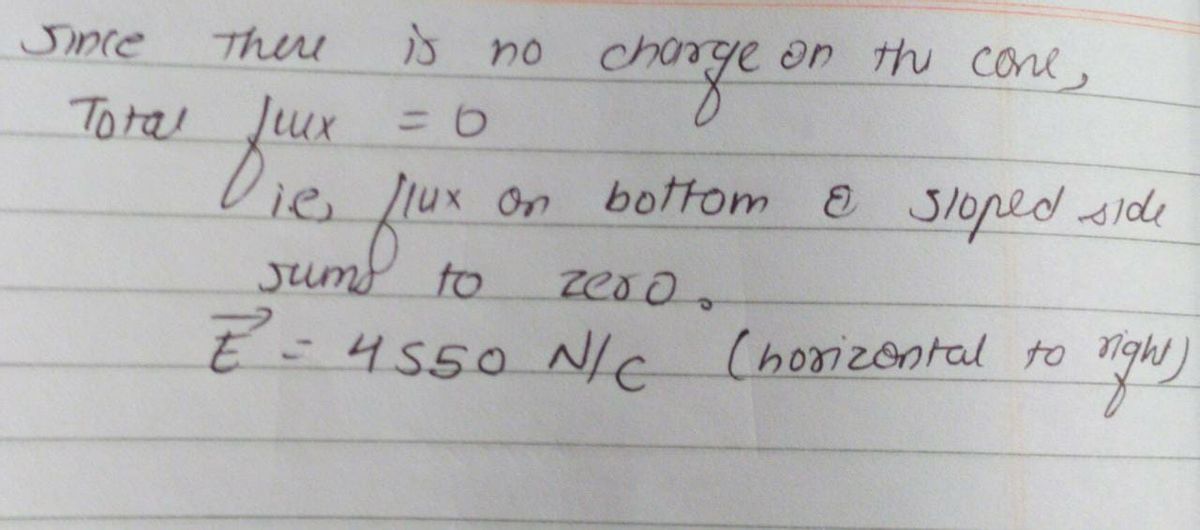 Since there is no charge on the cone,
Total flux = 0
ie, flux on bottom & sloped side
sums to zero.
E⃗ = 4550 N/C (horizontal to right)